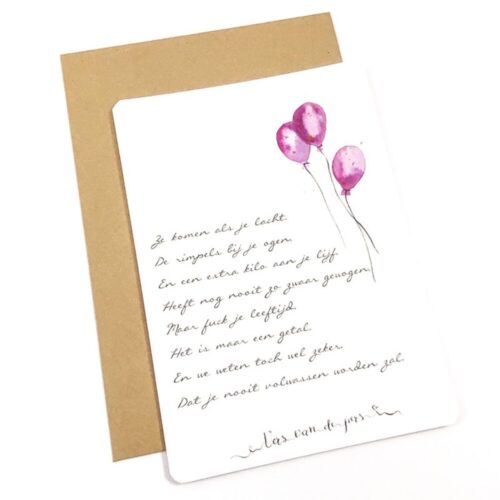 Ze komen als je lacht.
De rimpels bij je ogen.
En een extra kilo aan je lijf.
Heeft nog nooit zo zwaar gewogen.
Maar fuck je leeftijd.
Het is maar een getal.
En we weten toch wel zeker.
Dat je nooit volwassen worden zal.
van de pers